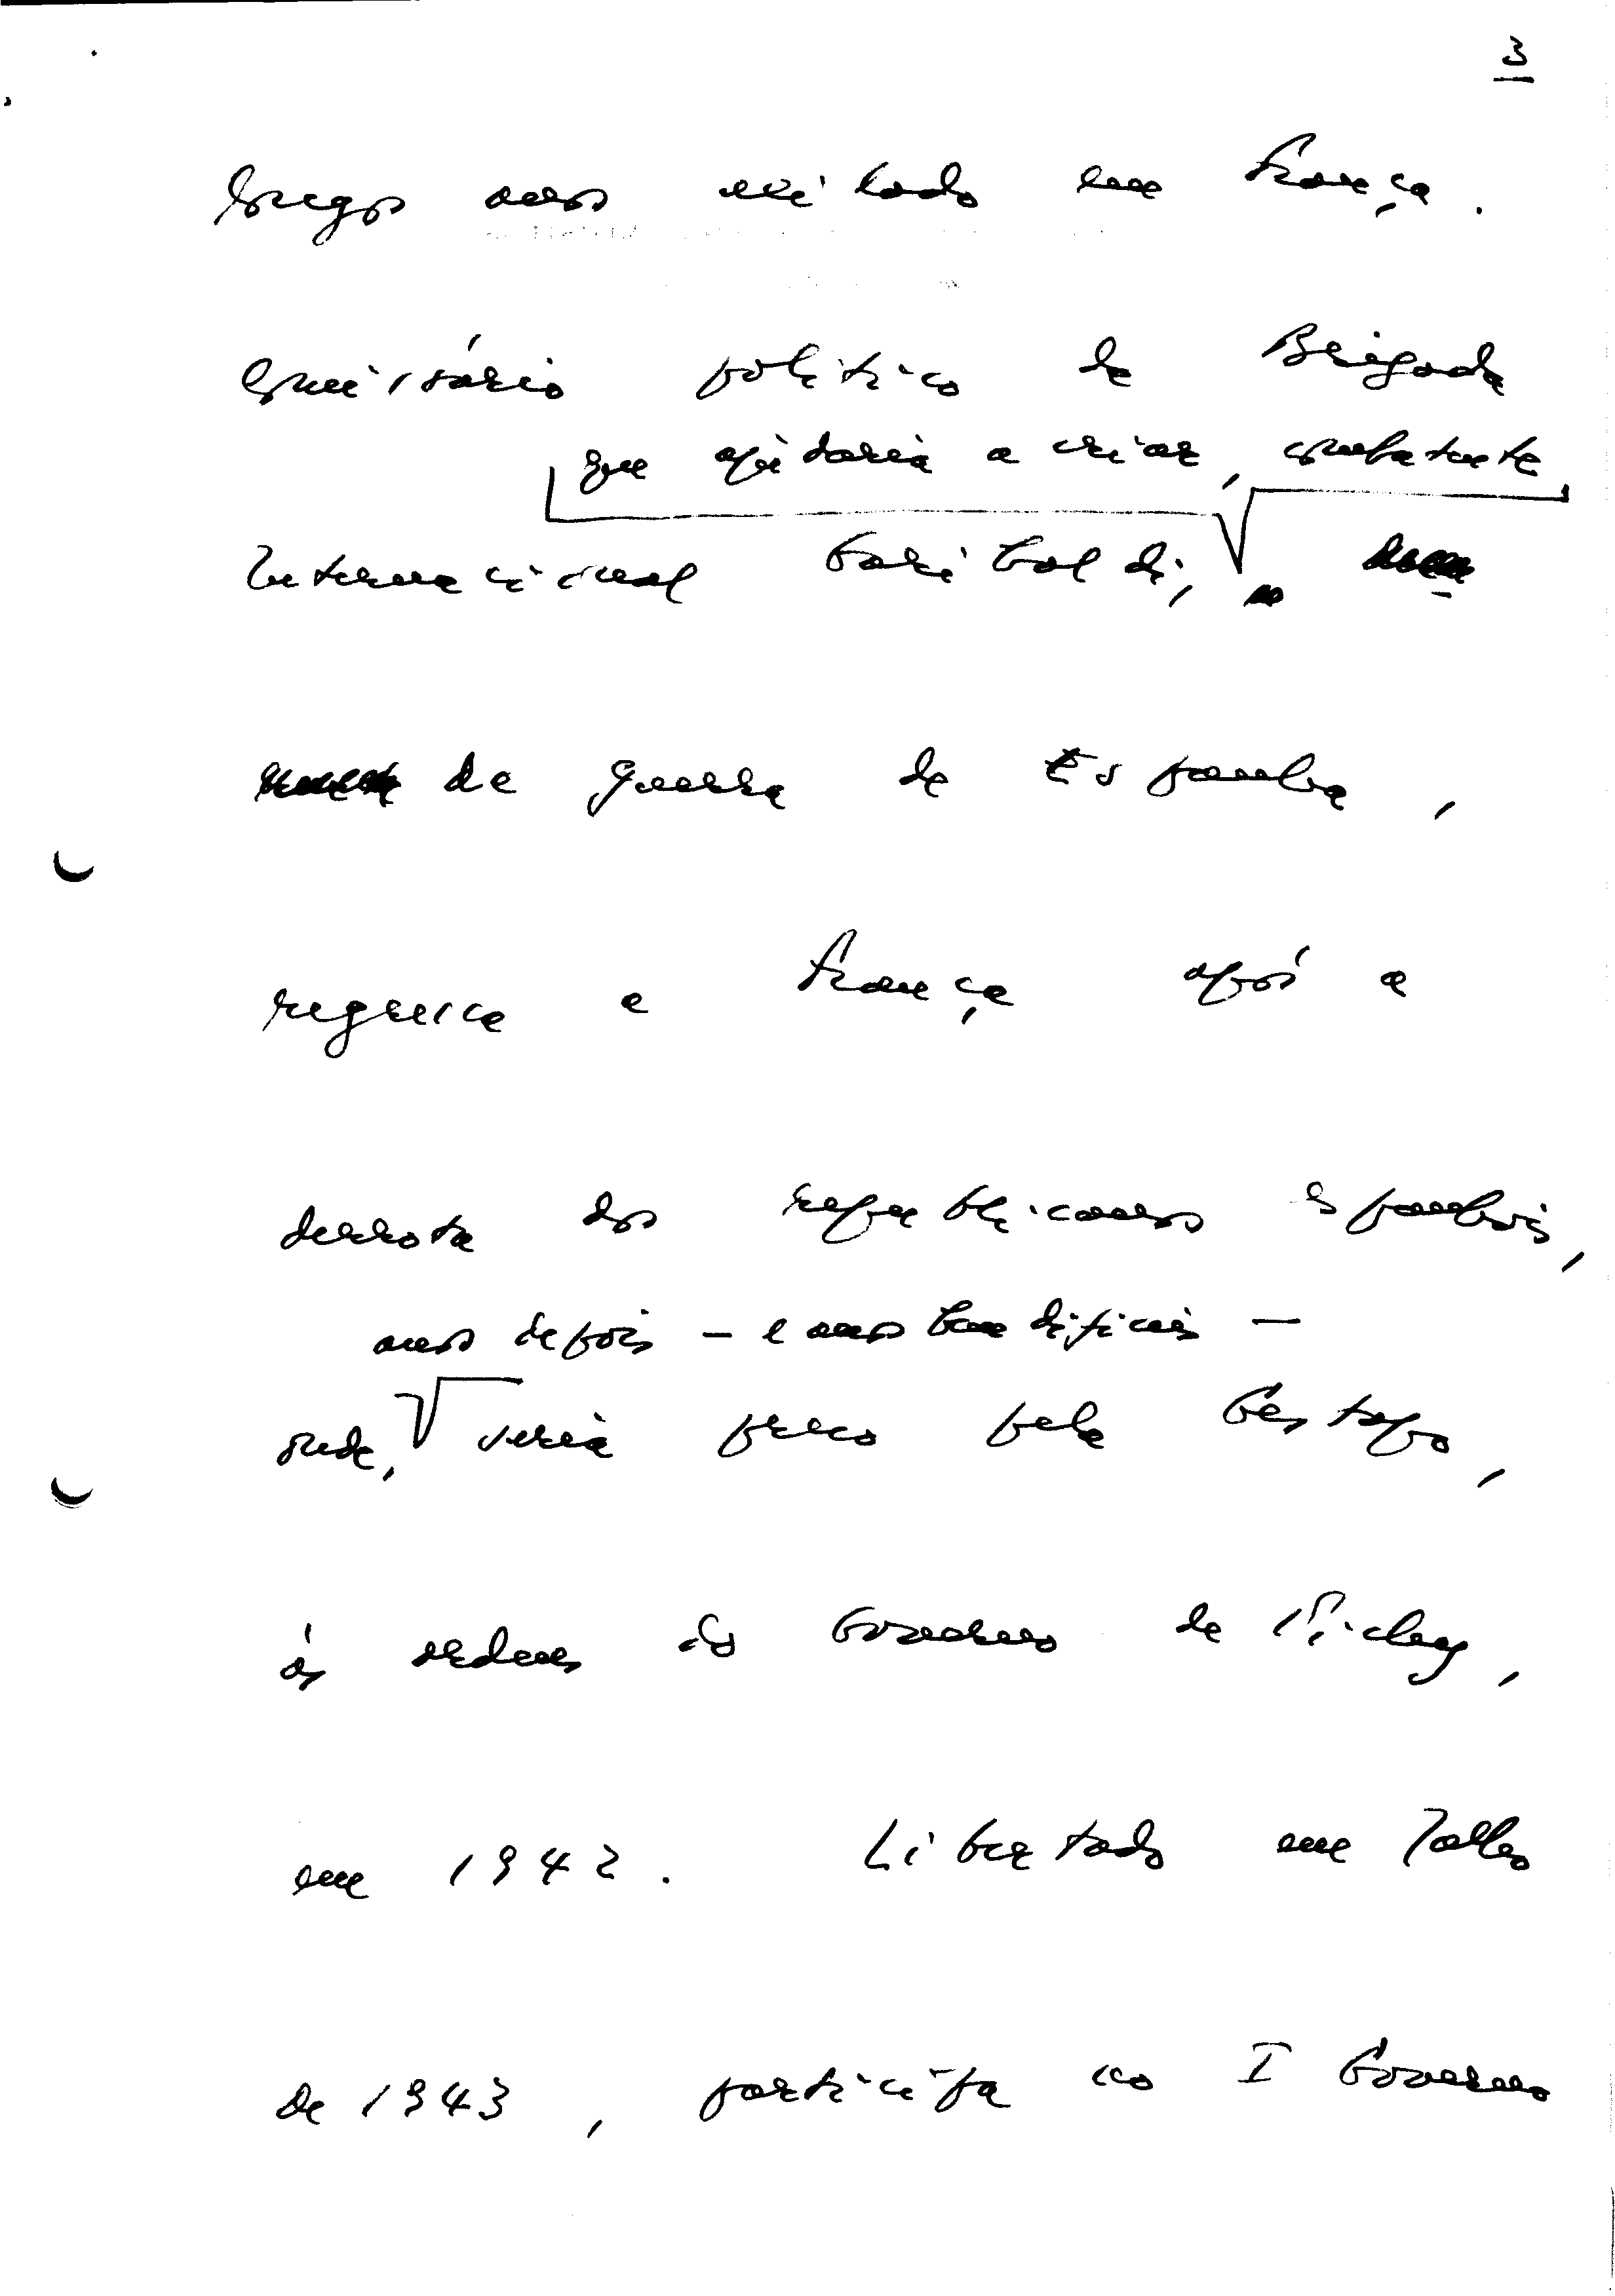 3
longos anos exilado em França.
Comissário político da Brigada
que ajudaria a criar, combatente
Internacional Garibaldi,
da guerra de Espanha,
regressa a França após a
derrota dos republicanos espanhóis,
anos depois – e anos bem difíceis –
onde, seria preso pela Gestapo,
às ordens do Governo de Vichy,
em 1942. Libertado em Julho
de 1943, participa no I Governo